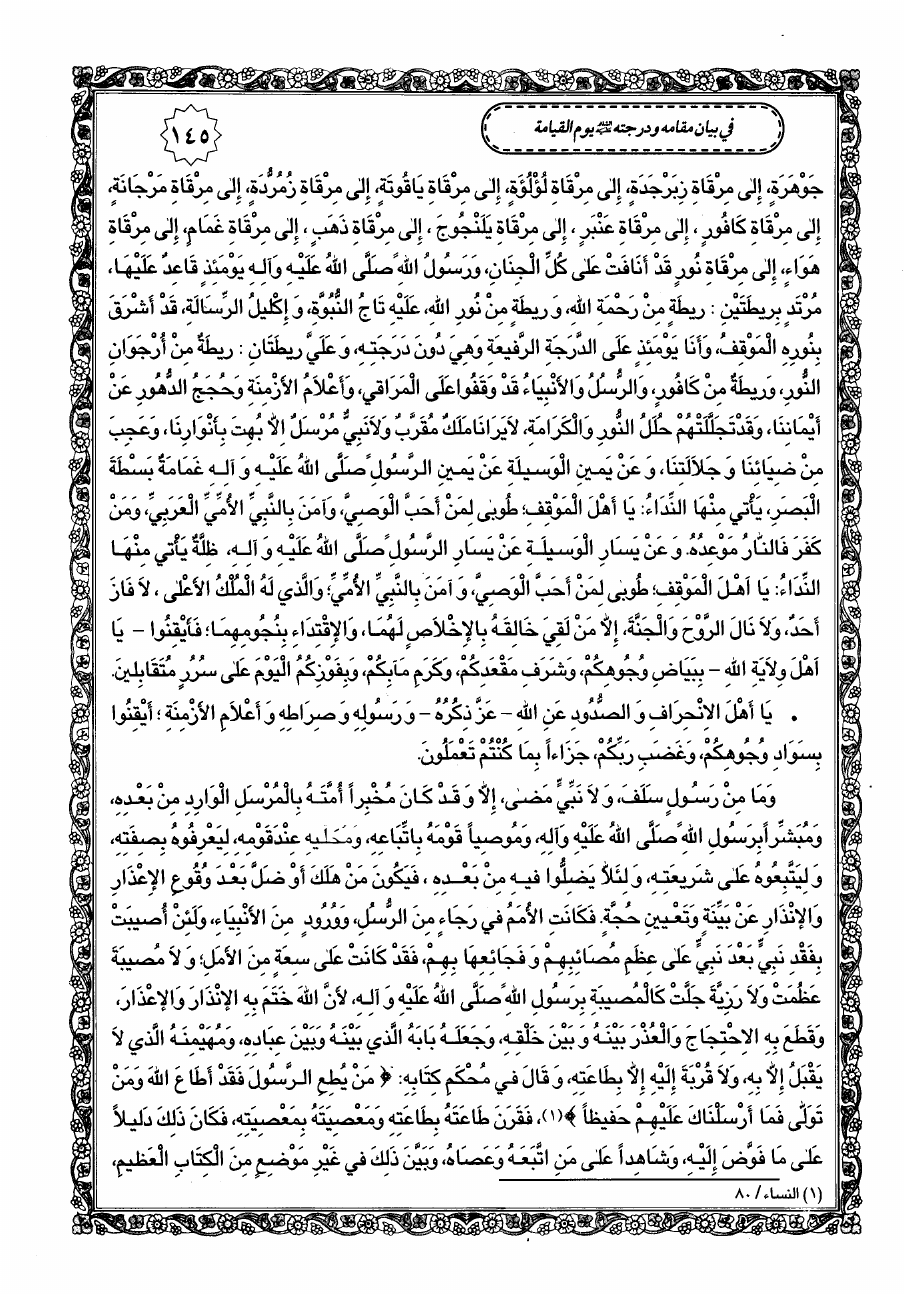 في بيان مقامه ودرجته ﷺ يوم القيامة
١٤٥
جَوْهَرَةٍ، إلى مِرْقَاةِ زِبَرْجَدَةٍ، إلى مِرْقَاةِ لُؤْلُؤَةٍ، إلى مِرْقَاةِ يَاقُوتَةٍ، إلى مِرْقَاةِ زُمُرُّدَةٍ، إلى مِرْقَاةِ مَرْجَانَةٍ،
إلى مِرْقَاةِ كَافُورٍ، إلى مِرْقَاةِ عَنْبَرٍ، إلى مِرْقَاةِ يَلَنْجُوجٍ، إلى مِرْقَاةِ ذَهَبٍ، إلى مِرْقَاةِ غَمَامٍ، إلى مِرْقَاةِ
هَوَاءٍ، إلى مِرْقَاةِ نُورٍ قَدْ أنَافَتْ عَلى كُلِّ الْجِنَانِ، وَرَسُولُ اللهِ صَلَّى اللهُ عَلَيْهِ وَآلِهِ يَوْمَئِذٍ قَاعِدٌ عَلَيْهَا،
مُرْتَدٍ بِرِيطَتَيْنِ: رِيطَةٍ مِنْ رَحْمَةِ اللهِ، وَ رِيطَةٍ مِنْ نُورِ اللهِ، عَلَيْهِ تَاجُ النُّبُوَّةِ، وَ إكْلِيلُ الرِّسَالَةِ، قَدْ أشْرَقَ
بِنُورِهِ الْمَوْقِفُ، وَأنَا يَوْمَئِذٍ عَلَى الدَّرَجَةِ الرَّفِيعَةِ وَهِيَ دُونَ دَرَجَتِهِ، وَ عَلَيَّ رِيطَتَانِ: رِيطَةٌ مِنْ أُرْجُوَانِ
النُّورِ، وَرِيطَةٌ مِنْ كَافُورٍ، وَالرُّسُلُ وَالأنْبِيَاءُ قَدْ وَقَفُوا عَلَى الْمَرَاقِي، وَأعْلاَمُ الأزْمِنَةِ وَحُجَجُ الدُّهُورِ عَنْ
أيْمَانِنَا، وَقَدْ تَجَلَّلَتْهُمْ حُلَلُ النُّورِ وَالْكَرَامَةِ، لاَ يَرَانَا مَلَكٌ مُقَرَّبٌ وَلاَ نَبِيٌّ مُرْسَلٌ إلاَّ بُهِتَ بِأنْوَارِنَا، وَعَجِبَ
مِنْ ضِيَائِنَا وَ جَلاَلَتِنَا، وَ عَنْ يَمِينِ الْوَسِيلَةِ عَنْ يَمِينِ الرَّسُولِ صَلَّى اللهُ عَلَيْهِ وَ آلِهِ غَمَامَةٌ بَسْطَةَ
الْبَصَرِ، يَأْتِي مِنْهَا النِّدَاءُ: يَا أهْلَ الْمَوْقِفِ؛ طُوبى لِمَنْ أحَبَّ الْوَصِيَّ، وَآمَنَ بِالنَّبِيِّ الأُمِّيِّ الْعَرَبِيِّ، وَمَنْ
كَفَرَ فَالنَّارُ مَوْعِدُهُ. وَ عَنْ يَسَارِ الْوَسِيلَةِ عَنْ يَسَارِ الرَّسُولِ صَلَّى اللهُ عَلَيْهِ وَ آلِهِ، ظُلَّةٌ يَأْتِي مِنْهَا
النِّدَاءُ: يَا أهْلَ الْمَوْقِفِ؛ طُوبى لِمَنْ أحَبَّ الْوَصِيَّ، وَ آمَنَ بِالنَّبِيِّ الأُمِّيِّ؛ وَالَّذِي لَهُ الْمُلْكُ الأعْلى، لاَ فَازَ
أحَدٌ، وَلاَ نَالَ الرَّوْحَ وَالْجَنَّةَ، إلاَّ مَنْ لَقِيَ خَالِقَهُ بِالإخْلاَصِ لَهُمَا، وَالإقْتِدَاءِ بِنُجُومِهِمَا؛ فَأيْقِنُوا – يَا
أهْلَ وِلاَيَةِ اللهِ – بِبَيَاضِ وُجُوهِكُمْ، وَشَرَفِ مَقْعَدِكُمْ، وَكَرَمِ مَآبِكُمْ، وَبِفَوْزِكُمُ الْيَوْمَ عَلى سُرُرٍ مُتَقَابِلِينَ.
• يَا أهْلَ الإنْحِرَافِ وَ الصُّدُودِ عَنِ اللهِ – عَزَّ ذِكْرُهُ – وَ رَسُولِهِ وَ صِرَاطِهِ وَ أعْلاَمِ الأزْمِنَةِ؛ أيْقِنُوا
بِسَوَادِ وُجُوهِكُمْ، وَغَضَبِ رَبِّكُمْ، جَزَاءاً بِمَا كُنْتُمْ تَعْمَلُونَ.
وَمَا مِنْ رَسُولٍ سَلَفَ، وَ لاَ نَبِيٍّ مَضى، إلاَّ وَ قَدْ كَانَ مُخْبِراً أُمَّتَهُ بِالْمُرْسَلِ الْوَارِدِ مِنْ بَعْدِهِ،
وَمُبَشِّراً بِرَسُولِ اللهِ صَلَّى اللهُ عَلَيْهِ وَآلِهِ، وَمُوصِياً قَوْمَهُ بِاتِّبَاعِهِ، وَمُحَلِّيهِ عِنْدَ قَوْمِهِ، لِيَعْرِفُوهُ بِصِفَتِهِ،
وَ لِيَتَّبِعُوهُ عَلى شَرِيعَتِهِ، وَ لِئَلاَّ يَضِلُّوا فِيهِ مِنْ بَعْدِهِ، فَيَكُونَ مَنْ هَلَكَ أوْ ضَلَّ بَعْدَ وُقُوعِ الإعْذَارِ
وَالإنْذَارِ عَنْ بَيِّنَةٍ وَتَعْيِينِ حُجَّةٍ. فَكَانَتِ الأُمَمُ فِي رَجَاءٍ مِنَ الرُّسُلِ، وَوُرُودٍ مِنَ الأنْبِيَاءِ، وَلَئِنْ أُصِيبَتْ
بِفَقْدِ نَبِيٍّ بَعْدَ نَبِيٍّ عَلى عِظَمِ مَصَائِبِهِمْ وَ فَجَائِعِهَا بِهِمْ، فَقَدْ كَانَتْ عَلى سِعَةٍ مِنَ الأمَلِ؛ وَ لاَ مُصِيبَةٌ
عَظُمَتْ وَلاَ رَزِيَّةٌ جَلَّتْ كَالْمُصِيبَةِ بِرَسُولِ اللهِ صَلَّى اللهُ عَلَيْهِ وَ آلِهِ، لأنَّ اللهَ خَتَمَ بِهِ الإنْذَارَ وَالإعْذَارَ،
وَقَطَعَ بِهِ الاحْتِجَاجَ وَالْعُذْرَ بَيْنَهُ وَ بَيْنَ خَلْقِهِ، وَجَعَلَهُ بَابَهُ الَّذِي بَيْنَهُ وَبَيْنَ عِبَادِهِ، وَمُهَيْمِنَهُ الَّذِي لاَ
يَقْبَلُ إلاَّ بِهِ، وَلاَ قُرْبَةَ إلَيْهِ إلاَّ بِطَاعَتِهِ، وَ قَالَ فِي مُحْكَمِ كِتَابِهِ: ﴿ مَنْ يُطِعِ الرَّسُولَ فَقَدْ أطَاعَ اللهَ وَمَنْ
تَوَلَّى فَمَا أرْسَلْنَاكَ عَلَيْهِمْ حَفِيظاً ﴾(١)، فَقَرَنَ طَاعَتَهُ بِطَاعَتِهِ وَمَعْصِيَتَهُ بِمَعْصِيَتِهِ، فَكَانَ ذَلِكَ دَلِيلاً
عَلى مَا فَوَّضَ إلَيْهِ، وَشَاهِداً عَلى مَنِ اتَّبَعَهُ وَعَصَاهُ، وَبَيَّنَ ذَلِكَ فِي غَيْرِ مَوْضِعٍ مِنَ الْكِتَابِ الْعَظِيمِ،
(١) النساء / ٨٠